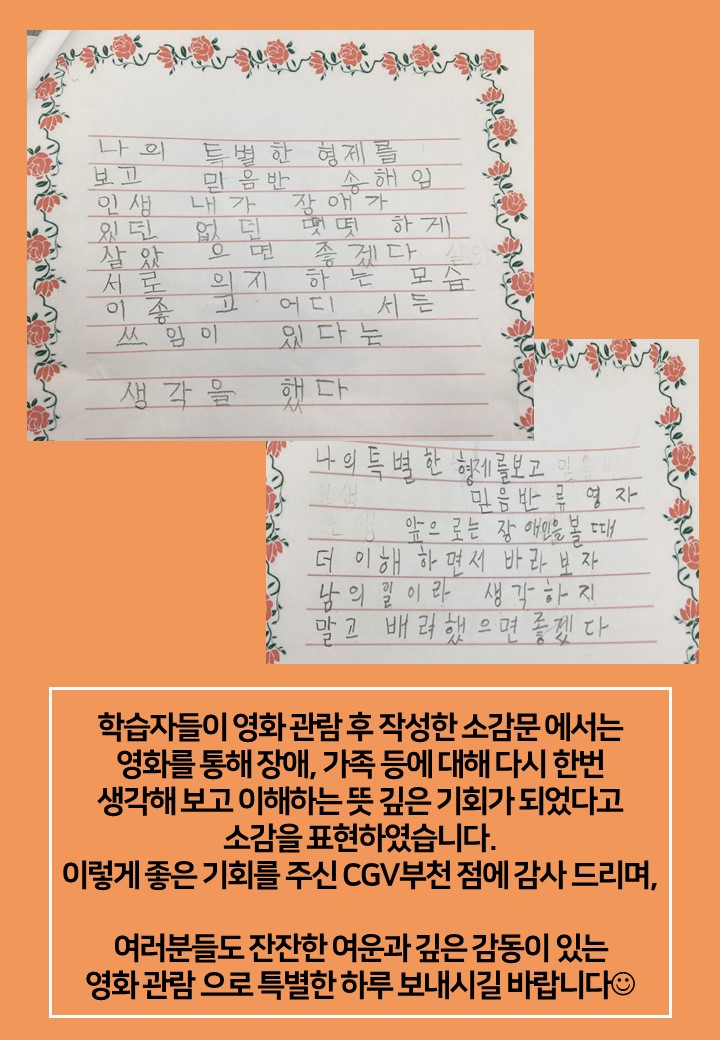 나의 특별한 형제를
보고 믿음반 송해임
인생 내가 장애가
있던 없던 떳떳 하게
잘았 으면 좋겠다
서로 의지 하는 모습
이 좋 고 어디 서든
쓰임이 있다는
생각을 했다
나의특별한 형제를보고
믿음반 류영자
앞으로는 장애인을볼때
더 이해 하면서 바라보자
남의 일이라 생각하지
말고 배려했으면좋겠다
학습자들이 영화 관람 후 작성한 소감문 에서는
영화를 통해 장애, 가족 등에 대해 다시 한번
생각해 보고 이해하는 뜻 깊은 기회가 되었다고
소감을 표현하였습니다.
이렇게 좋은 기회를 주신 CGV부천 점에 감사 드리며,
여러분들도 잔잔한 여운과 깊은 감동이 있는
영화 관람 으로 특별한 하루 보내시길 바랍니다☺